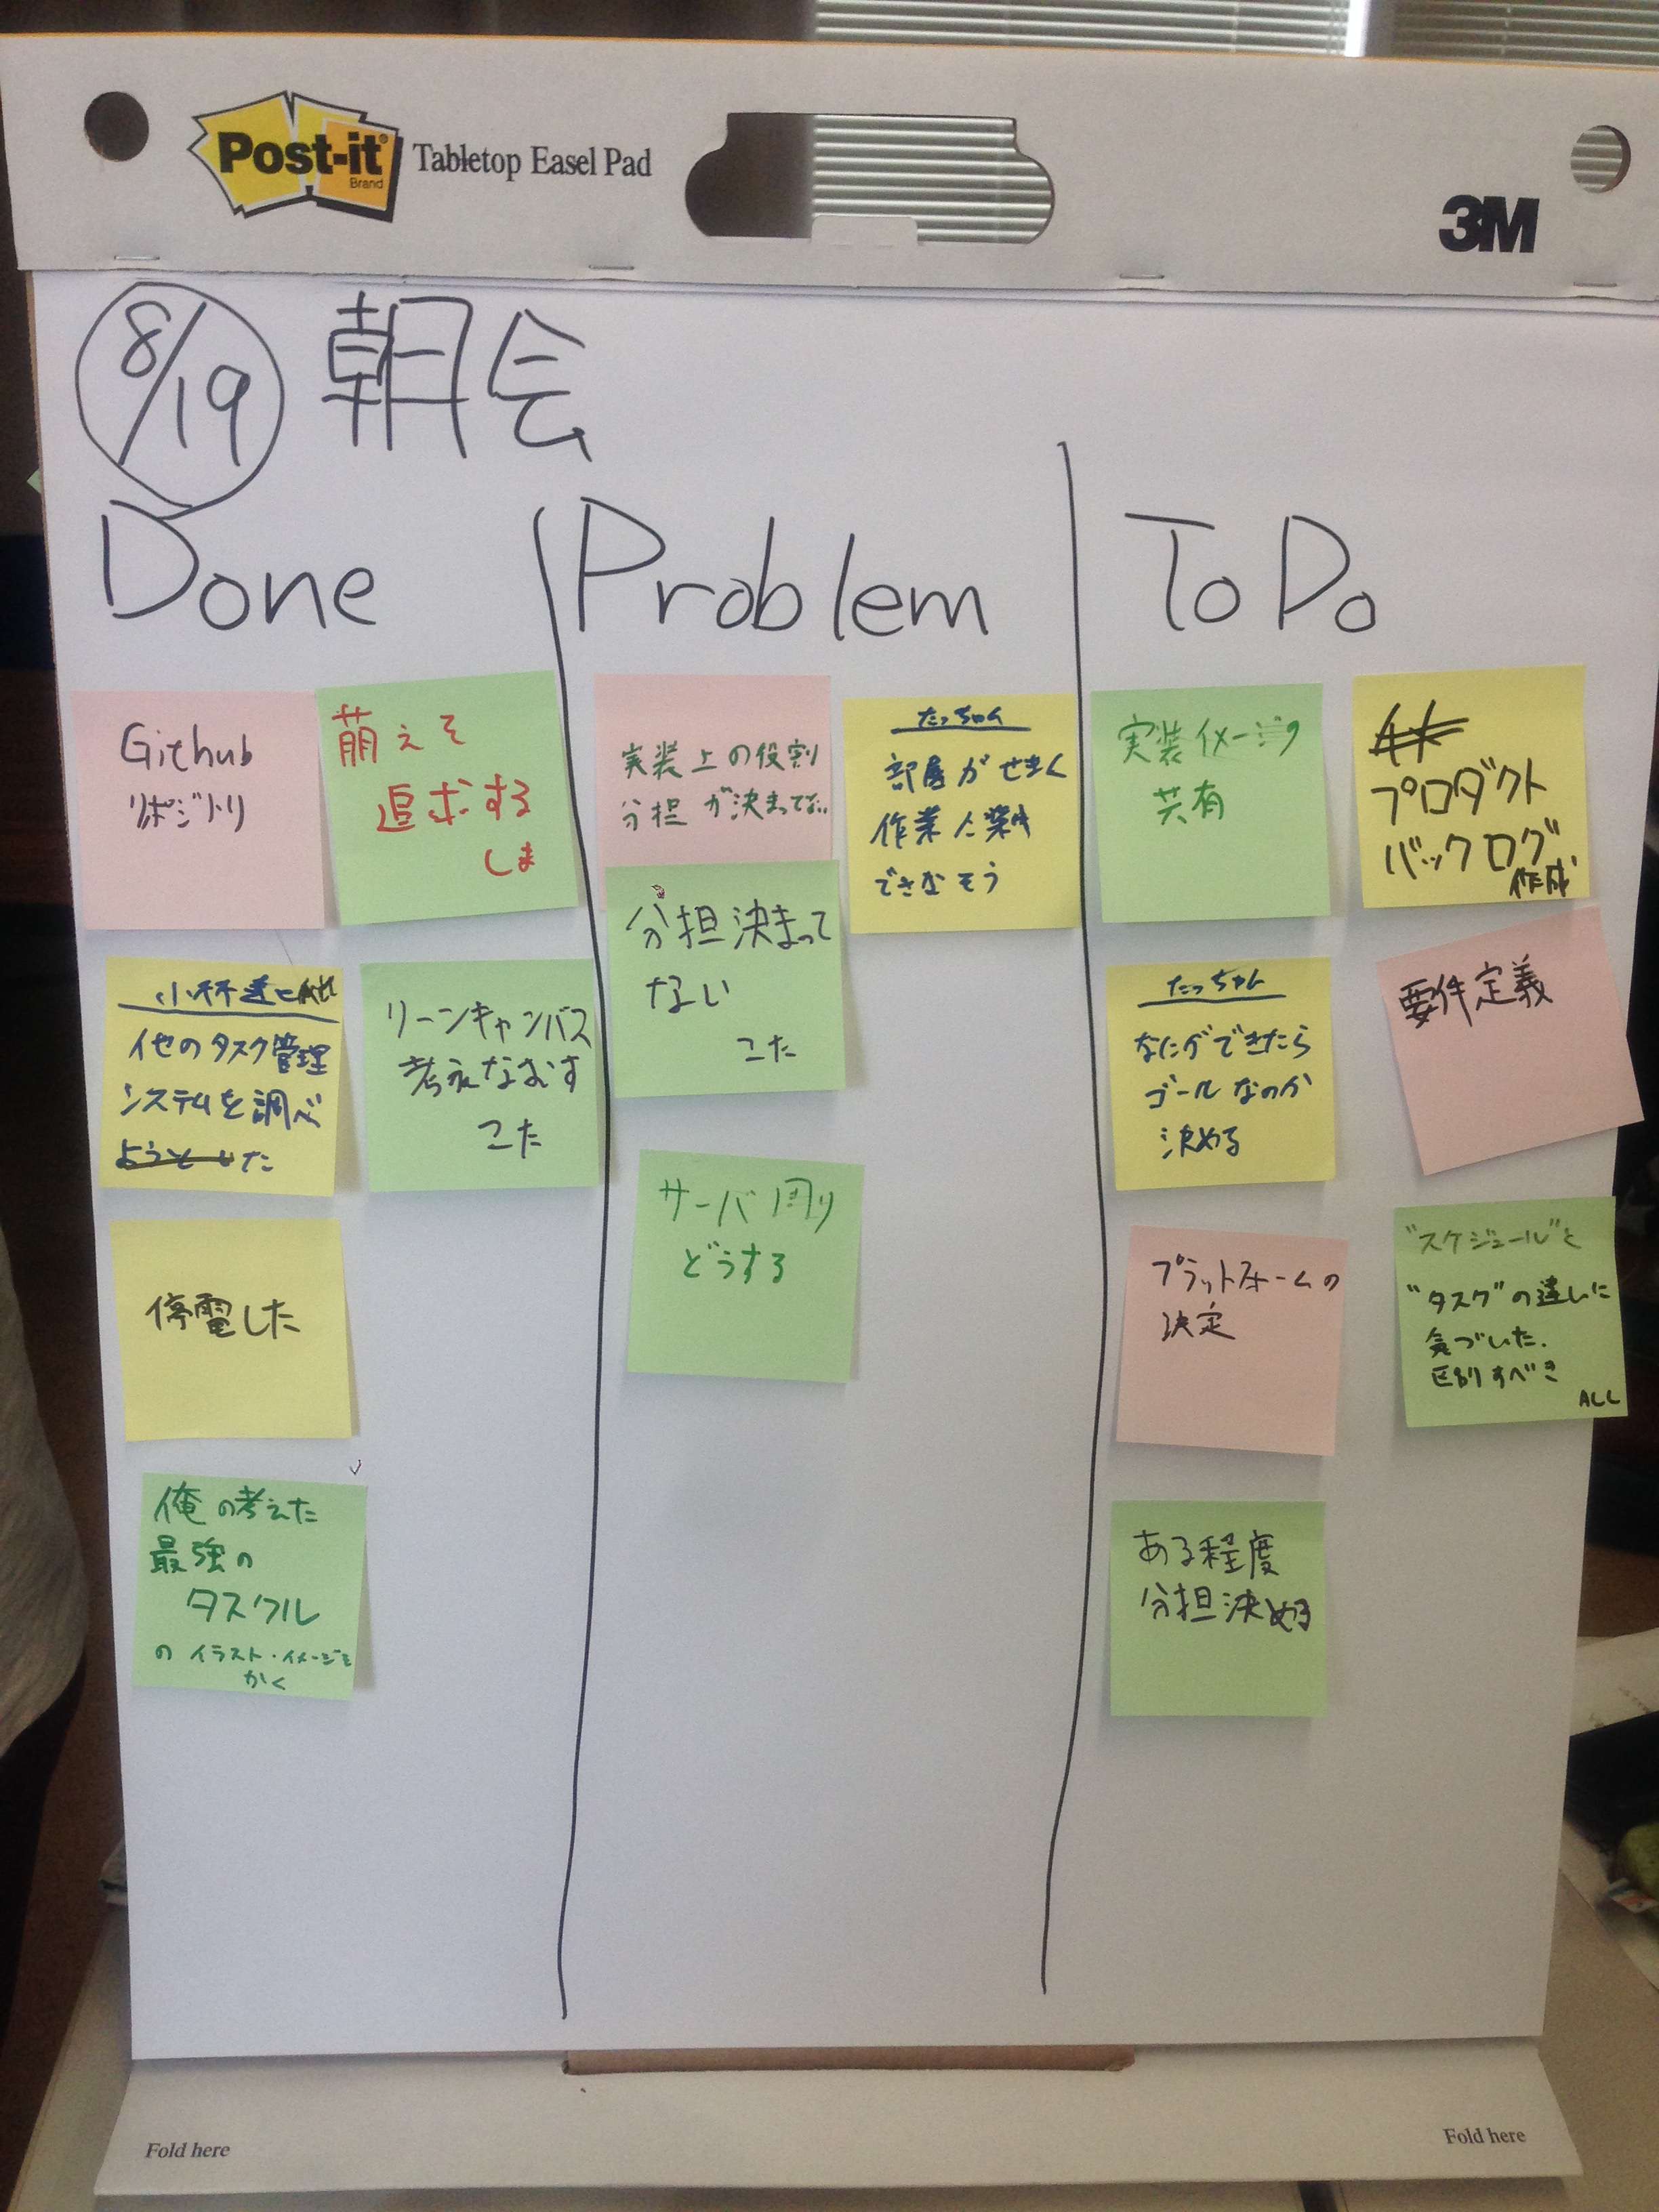 Post-it
Brand
Tabletop Easel Pad
3M
8/19 朝会
Done
Github
リポジトリ
萌えを
追求する
しま
他のタスク管理
システムを調べ
た
リーンキャンバス
考えなおす
こた
停電した
俺の考えた
最強の
タスクル
の イラスト・イメージを
かく
Problem
実装上の役割
分担 が決まってない
たっちゃん
部屋がせまく
作業
できなそう
分担決まって
ない
こた
サーバ周り
どうする
ToDo
実装イメージ
共有
プロダクト
バックログ
作成
たっちゃん
なにができたら
ゴールなのか
決める
要件定義
プラットフォームの
決定
"スケジュール"と
"タスク"の違いに
気づいた.
区別すべき
ALL
ある程度
分担決める
Fold here
Fold here